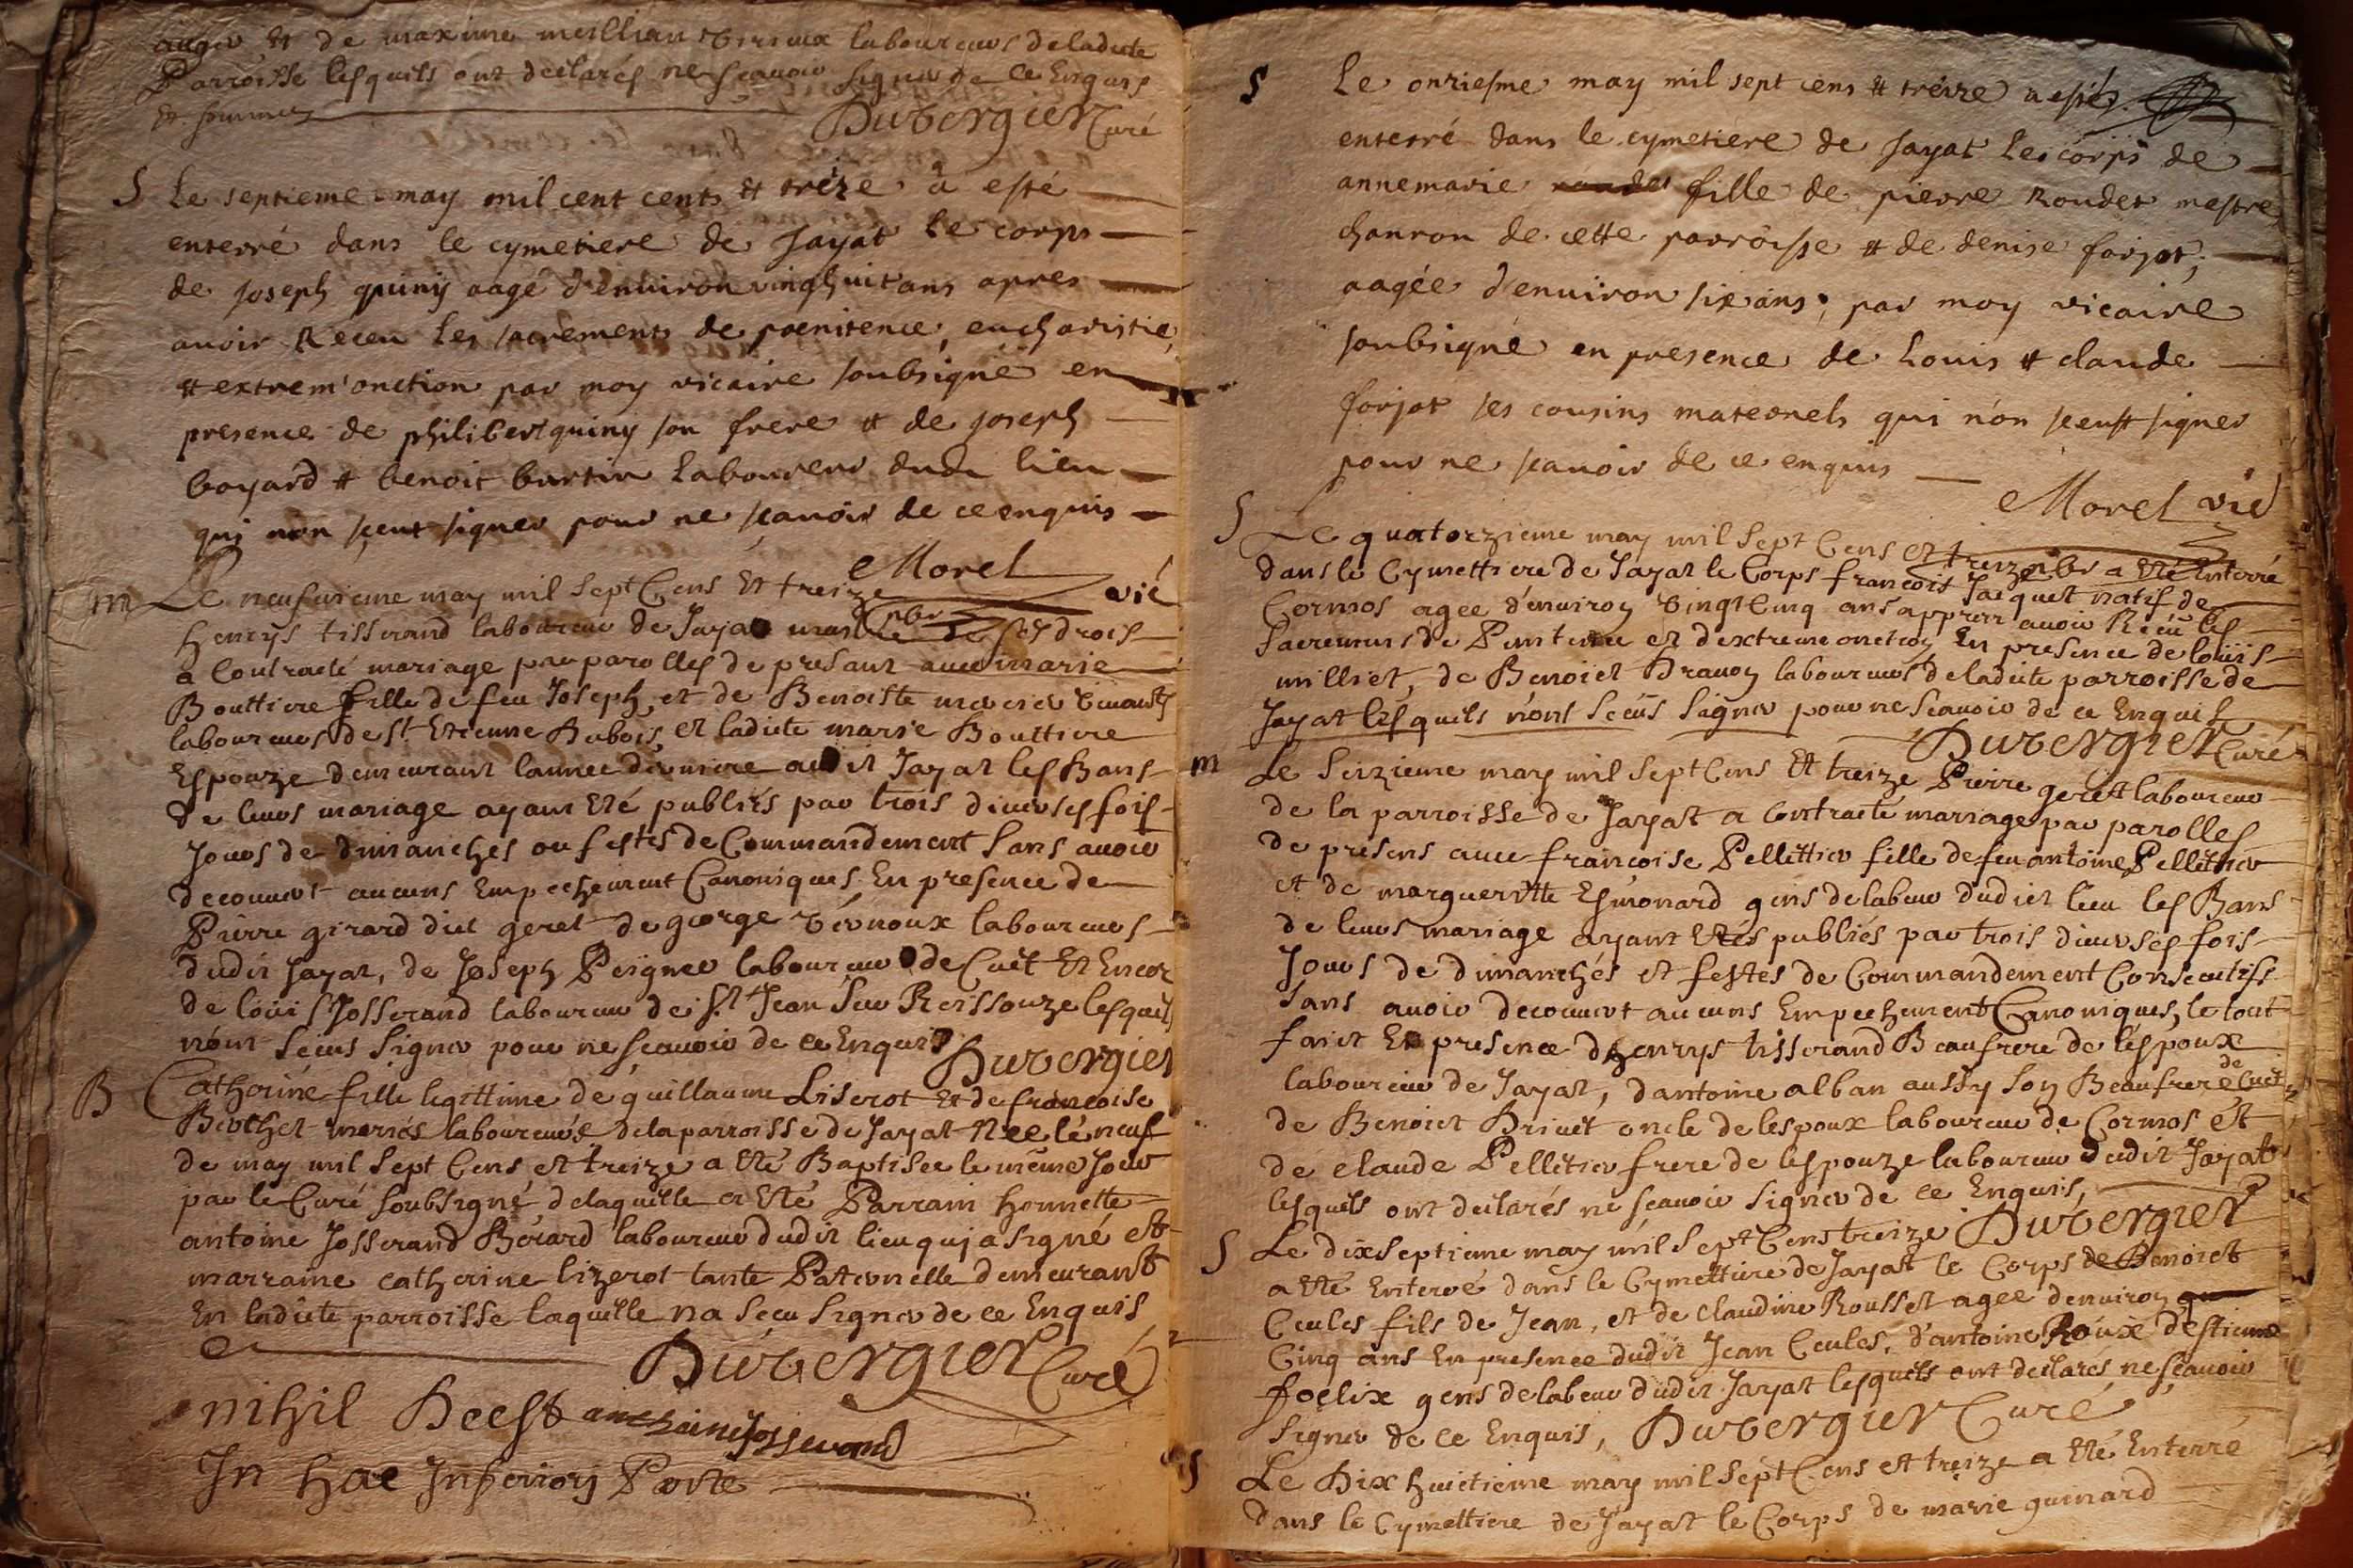 et de maxime meillian vivieux laboureurs deladicte
Parroisse lesquels ont déclarés ne scauoir signer de ce Enquis
et sommez
Duvergier Curé
S Le septieme may mil cent cents et treize a esté
enterré dans le cymetiere de Jayat le corps
de joseph quiny aagé d'enuiron vinghuit ans apres
auoir Receu les sacrements de poenitence, eucharistie,
et extrem'onction par moy vicaire soubsigné en
presence de philibert quiny son frere et de joseph
boyard et benoit burtin Laboureurs dudit lieu
qui non sceut signer pour ne scauoir de ce enquis
Morel vic
m Le neufuieme may mil sept Cens Et treize
henrys tisserand laboureur de Jayat de ses drois
a Contracté mariage par parolles de presant auec marie
Bouttiere fille de feu Joseph, et de Benoiste mercier viuants
laboureurs de St Etienne Dubois, et ladicte marie Bouttiere
Espouze demeurant lannee derniere audit Jayat les Bans
de leurs mariage ayant Eté publiés par trois diuerses fois
Jours de dimanches ou festes de Commandement sans auoir
decouuert aucuns Empechement Canoniques En presence de
Pierre girard dict geret de george véunoux laboureurs
dudit Jayat, de Joseph Peigner laboureur de Cuët Et Encor
de loüis Josserand laboureur de St Jean sur Reissouze lesquels
n'ont sceus signer pour ne scauoir de ce Enquis
Duvergier
B Catherine fille legittime de guillaume Liserot Et de francoise
Berthet mariés laboureurs de la parroisse de Jayat Née le neuf
de may mil sept Cens et treize a Eté Baptisee le même Jour
par le Curé soubsigné, de laquelle a Eté Parrain honnette
antoine Josserand Bérard laboureur dudit lieu qui a signé et
marraine catherine lizerot tante Paternelle demeurant
En ladicte parroisse laquelle na sceu signer de ce Enquis
Duvergier Curé
nihil Deest anthoine josserand
In hac Inferiori Parte
S Le onziesme may mil sept cens et treize a esté
enterré dans le cymetiere de Jayat le corps de
annemarie fille de pierre Roudet mestre
chanron de cette parroisse et de denise forjot,
aagée d'enuiron six ans, par moy vicaire
soubsigné en presence de Louis et claude
forjot ses cousins maternels qui n'on sceust signer
pour ne scauoir de ce enquis
Morel vic
S Le quatorzieme may mil sept Cens et treize a Eté Enterré
dans le Cymettiere de Jayat le Corps francois Jacquet natif de
Cormos agee d'enuiron vingt Cinq ans apprez auoir Receu les
Sacremens de Penitence et d'extreme onction En presence de loüis
milliet, de Benoict Drauon laboureurs de ladicte parroisse de
Jayat lesquels n'ont sceus signer pour ne scauoir de ce Enquis
Duvergier Curé
m Le seizieme may mil sept Cens Et treize Pierre gerett laboureur
de la parroisse de Jayat a Contracté mariage par parolles
de présens auec francoise Pellettier fille de feu antoine Pellettier
et de marguerittte Esmonard gens de labeur dudict lieu les Bans
de leurs mariage ayant Etés publiés par trois diuerses fois
Jours de dimanches et festes de Commandement Consecutifs
sans auoir decouuert aucuns Empechement Canoniques, le tout
faict En presence dhenrys tisserand Beaufrere de lespoux
laboureur de Jayat, dantoine alban aussy son Beaufrere de Cuet
de Benoict Briuet oncle de lespoux laboureur de Cormos et
de claude Pelletier frere de lespouze laboureur dudit Jayat
lesquels ont declarés ne scauoir signer de ce Enquis,
Duvergier
S Le dixseptieme may mil sept Cens treize
a Eté Enterré dans le Cymettiere de Jayat le Corps de Benoict
Ceules fils de Jean, et de Claudine Rousset agee denuiron
Cinq ans En presence dudit Jean Ceules, d'antoine Roux d'estienne
foelix gens de labeur dudit Jayat lesquels ont declarés ne scauoir
signer de ce Enquis, Duvergier Curé
S Le Dix huitieme may mil sept Cens et treize a Eté Enterré
dans le Cymettiere de Jayat le Corps de marie guinard